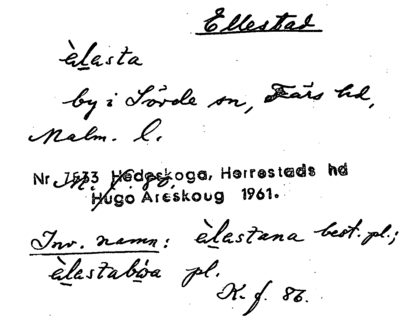 Ellestad
èlasta
by i Sövde sn, Färs hd,
Malm. l.
Nr 7533 Hedeskoga, Herrestads hd
Hugo Areskoug 1961.
Inv. namn: èlastana best. pl.;
èlastabòa pl.
K. f. 86.